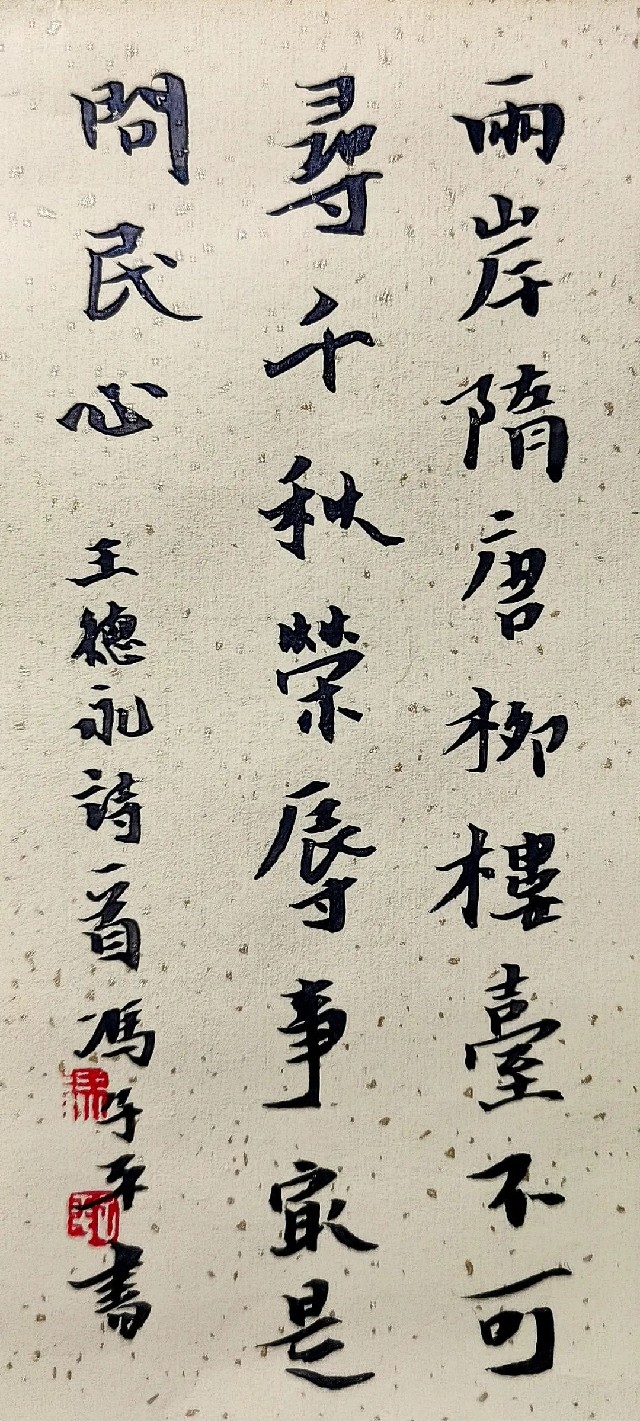 兩岸隋唐柳樓臺不可
尋千秋榮辱事寂是
問民心
王德永詩一首馮学平書